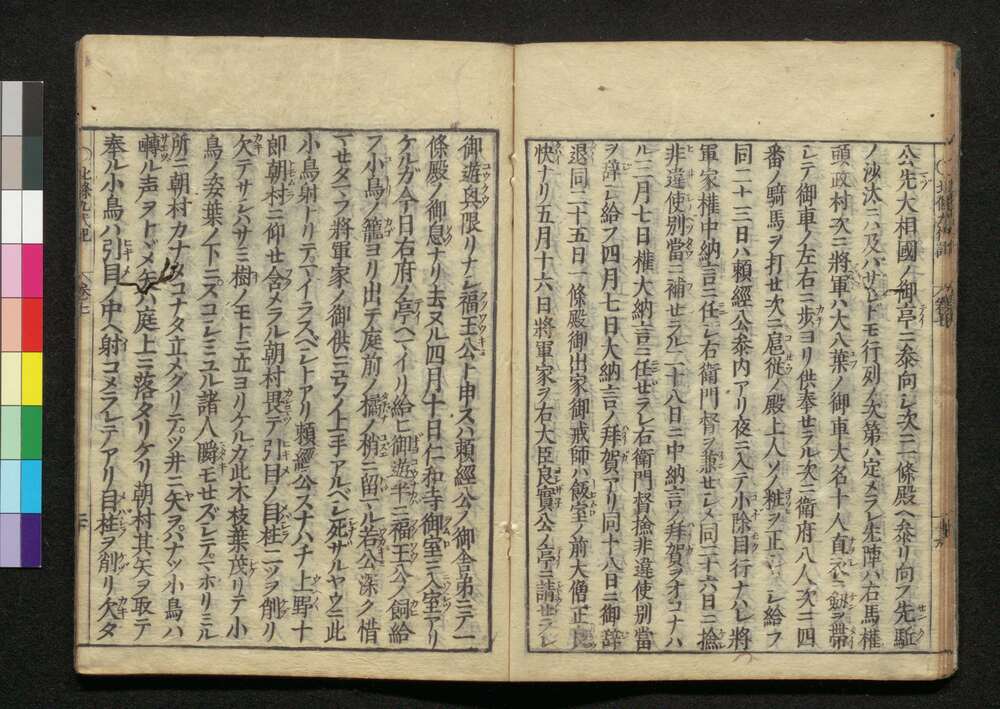 公先大相國ノ御亭ニ參向シ次ニ一條殿ヘ參リ向フ先駈
ノ沙汰ニハ及バサレドモ行列ノ次第ハ定メラレ先陣ハ右馬權
頭政村次ニ將軍ハ大八葉ノ御車大名十人直垂劔ヲ帶
シテ御車ノ左右ニ歩ヨリ供奉セラル次ニ衛府八人次ニ四
番ノ騎馬ヲ打セ次ニ扈從ノ殿上人ソノ粧ヲ正シ給フ
同二十三日ハ頼經公參内アリ夜ニ入テ小除目行ナハレ將
軍家權中納言ニ任シ右衛門督ヲ兼セシム同二十六日ニ撿
非違使別當ニ補セラル二十八日ニ中納言ノ拜賀ヲオコナハ
ル三月七日權大納言ニ任ゼラレ右衛門督撿非違使別當
ヲ辭シ給フ四月七日大納言ノ拜賀アリ同十八日ニ御辭
退同二十五日一條殿御出家御戒師ハ飯室ノ前大僧正良
快ナリ五月十六日將軍家ヲ右大臣良實公ノ亭ニ請セラレ
御遊興限リナシ福王公ト申スハ頼經公ノ御舎弟ニテ一
條殿ノ御息ナリ去ヌル四月十日仁和寺御室ニ入室アリ
ケルガ今日右府ノ亭ヘマイリ給ヒ御遊半ニ福王公ノ飼給
フ小鳥ノ籠ヨリ出テ庭前ノ橘ノ梢ニ留マル若公深ク惜
マセタマフ將軍家ノ御供ニ弓ノ上手アルベシ死サルヤウニ此
小鳥射トリテマイラスベシトアリ頼經公スナハチ上野十
郎朝村ニ仰セ含メラル朝村畏テ引目ノ目柱二ツヲ削リ
欠テサシハサミ樹ノモトニ立ヨリケルカ此木枝葉茂リテ小
鳥ノ姿葉ノ下ニスコシミユル諸人瞬モセズシテマホリミル
所ニ朝村カナタコナタ立メグリテツ井ニ矢ヲハナツ小鳥ハ
囀ル声ヲトヾメ矢ハ庭上ニ落タリケリ朝村其矢ヲ取テ
奉ル小鳥ハ引目ノ中ヘ射コメラレテアリ目柱ヲ削リ欠タ
北條九代記